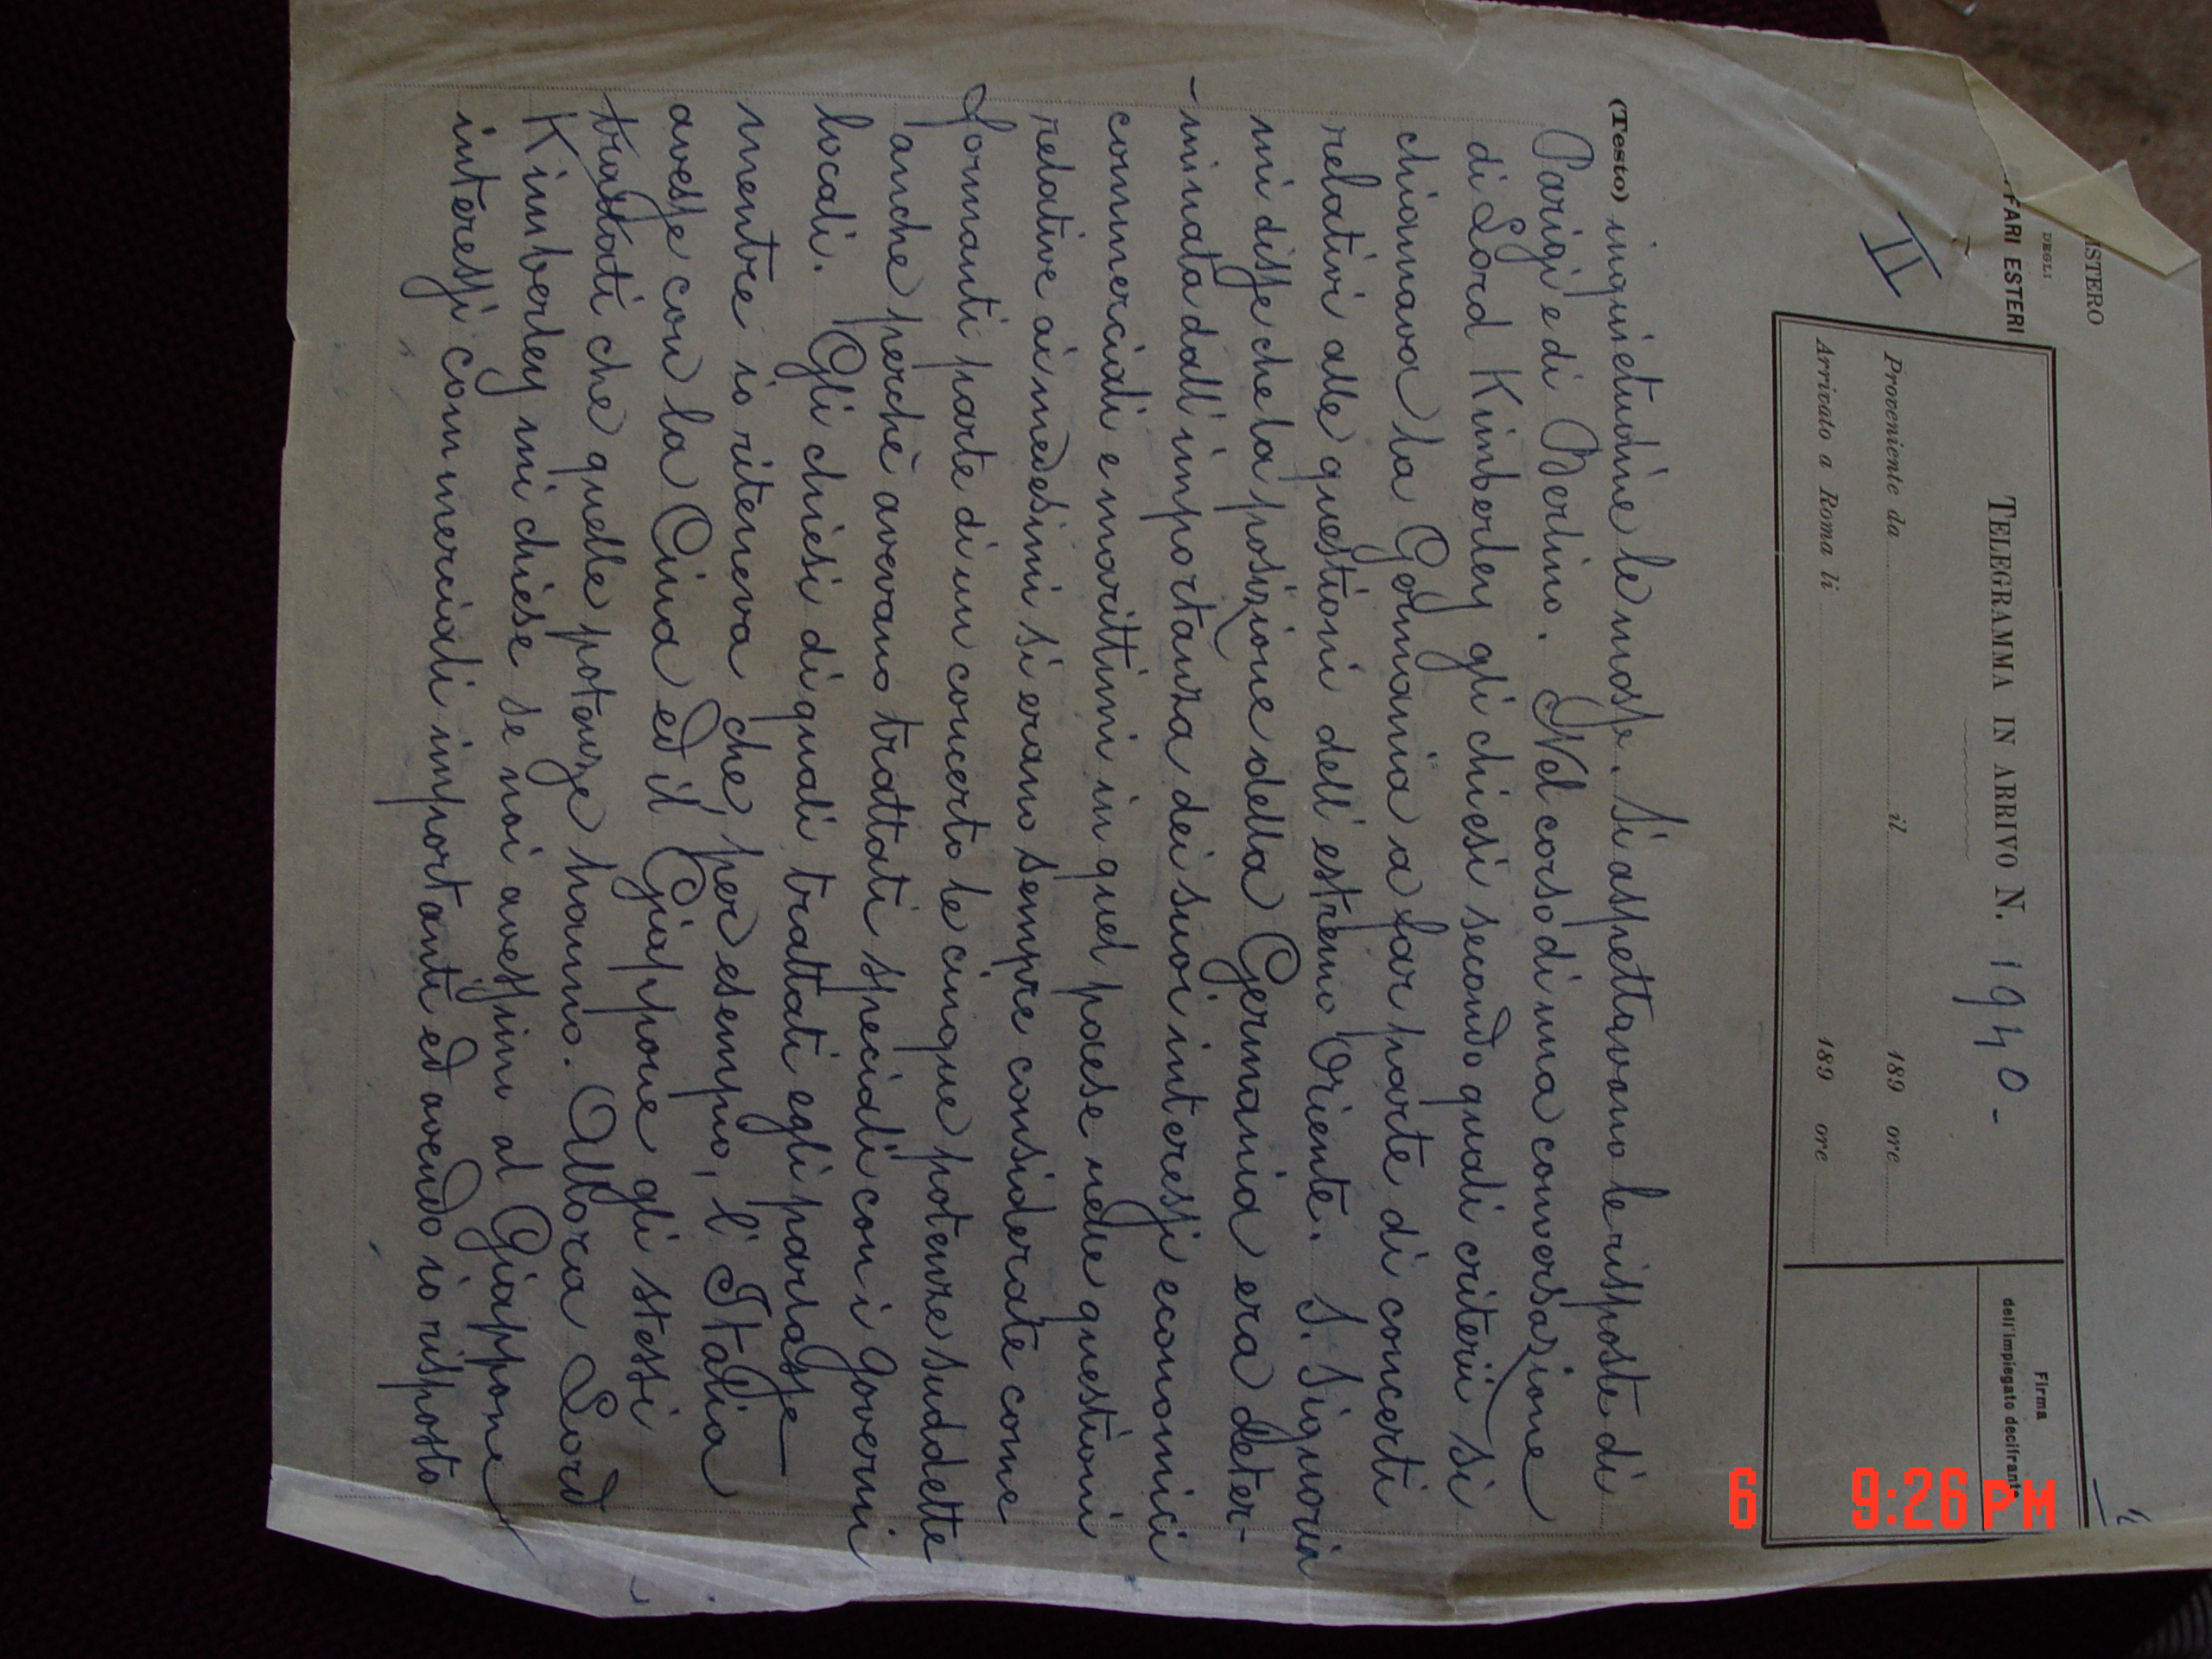 ISTERO
DEGLI
FARI ESTERI
II
TELEGRAMMA IN ARRIVO N. 1940-
Proveniente da il 189 ore
Arrivato a Roma li 189 ore
Firma
dell'impiegato decifrante
(Testo) inquietudine le masse. Si aspettavano le risposte di
Parigi e di Berlino. Nel corso di una conversazione
di Lord Kimberley gli chiesi secondo quali criterii si
chiamava la Germania a far parte di concerti
relativi alle questioni dell'estremo Oriente. S. Signoria
mi disse che la posizione della Germania era deter-
-minata dall'importanza dei suoi interessi economici
commerciali e marittimi in quel paese nelle questioni
relative ai medesimi si erano sempre considerate come
formanti parte di un concerto le cinque potenze suddette
anche perchè avevano trattati speciali con i governi
locali. Gli chiesi di quali trattati egli parlasse
mentre io riteneva che, per esempio, l'Italia
avesse con la Cina ed il Giappone gli stessi
trattati che quelle potenze hanno. Allora Lord
Kimberley mi chiese se noi avessimo al Giappone
interessi commerciali importanti ed avendo io risposto
6 9:26 PM